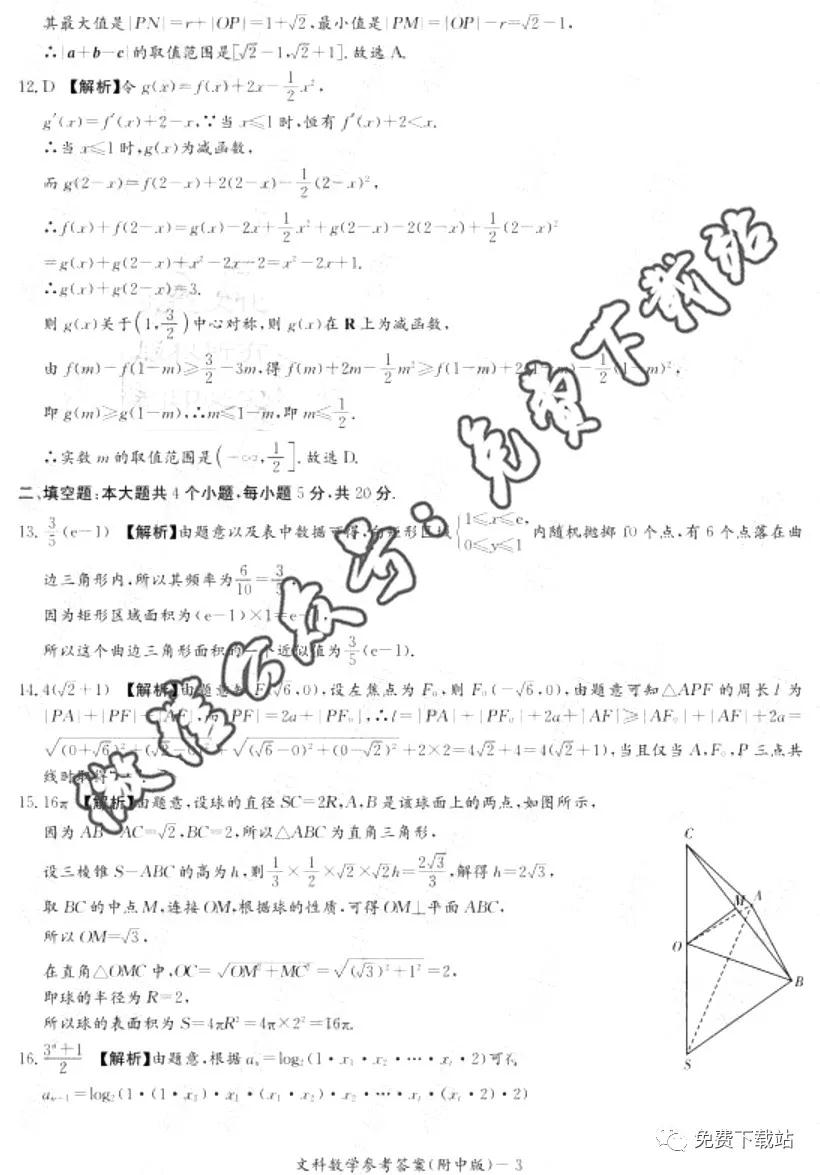 其最大值是|PN|=r+|OP|=1+√2,最小值是|PM|=|OP|-r=√2-1,
∴|a+b-c|的取值范围是[√2-1,√2+1].故选 A.
12. D 【解析】令 g(x)=f(x)+2x-1/2x²,
g′(x)=f′(x)+2-x,∵当 x≤1 时,恒有 f′(x)+2<x.
∴当 x≤1 时,g(x)为减函数,
而 g(2-x)=f(2-x)+2(2-x)-1/2(2-x)²,
∴f(x)+f(2-x)=g(x)-2x+1/2x²+g(2-x)-2(2-x)+1/2(2-x)²
=g(x)+g(2-x)+x²-2x-2=x²-2x+1.
∴g(x)+g(2-x)=3.
则 g(x)关于(1,3/2)中心对称,则 g(x)在 R 上为减函数,
由 f(m)-f(1-m)≥3/2-3m,得 f(m)+2m-1/2m²≥f(1-m)+2(1-m)-1/2(1-m)²,
即 g(m)≥g(1-m),∴m≤1-m,即 m≤1/2.
∴实数 m 的取值范围是(-∞,1/2].故选 D.
二、填空题:本大题共 4 个小题,每小题 5 分,共 20 分.
13. 3/5(e-1) 【解析】由题意以及表中数据可得,向矩形区域{1≤x≤e, 0≤y≤1 内随机抛掷 10 个点,有 6 个点落在曲
边三角形内,所以其频率为6/10=3/5.
因为矩形区域面积为(e-1)×1=e-1,
所以这个曲边三角形面积的一个近似值为3/5(e-1).
14. 4(√2+1) 【解析】由题意知 F(√6,0),设左焦点为 F₀,则 F₀(-√6,0),由题意可知△APF 的周长 l 为
|PA|+|PF|+|AF|,而|PF|=2a+|PF₀|,∴l=|PA|+|PF₀|+2a+|AF|≥|AF₀|+|AF|+2a=
√(0+√6)²+(√2-0)²+√(√6-0)²+(0-√2)²+2×2=4√2+4=4(√2+1),当且仅当 A,F₀,P 三点共
线时取得
15. 16π 【解析】由题意,设球的直径 SC=2R,A,B 是该球面上的两点,如图所示,
因为 AB=AC=√2,BC=2,所以△ABC 为直角三角形,
设三棱锥 S-ABC 的高为 h,则1/3×1/2×√2×√2h=2√3/3,解得 h=2√3,
取 BC 的中点 M,连接 OM,根据球的性质,可得 OM⊥平面 ABC,
所以 OM=√3,
在直角△OMC 中,OC=√OM²+MC²=√(√3)²+1²=2,
即球的半径为 R=2,
所以球的表面积为 S=4πR²=4π×2²=16π.
C
M
A
O
B
S
16. (3ⁿ+1)/2 【解析】由题意,根据 aₙ=log₂(1·x₁·x₂·…·xₜ·2)可得
aₙ₊₁=log₂(1·(1·x₁)·x₁·(x₁·x₂)·x₂·…·xₜ·(xₜ·2)·2)
微信公众号:免费下载站
免费下载站
文科数学参考答案(附中版)-3